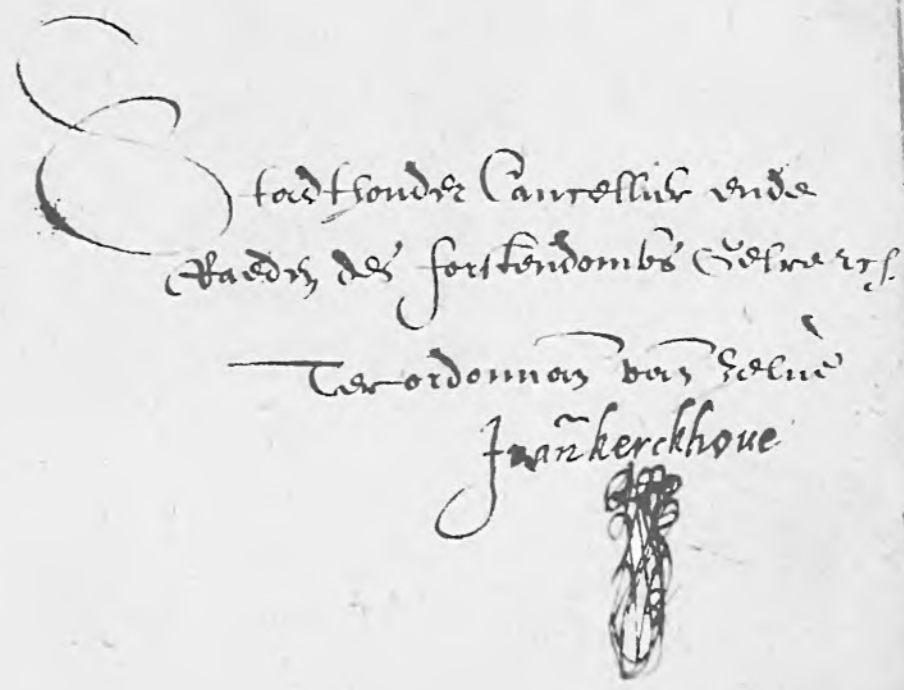 Stadthouder Cancellier ende
Raeden des forstendombs Gelre etc.
Ter ordonnan van zelue
J van kerckhoue